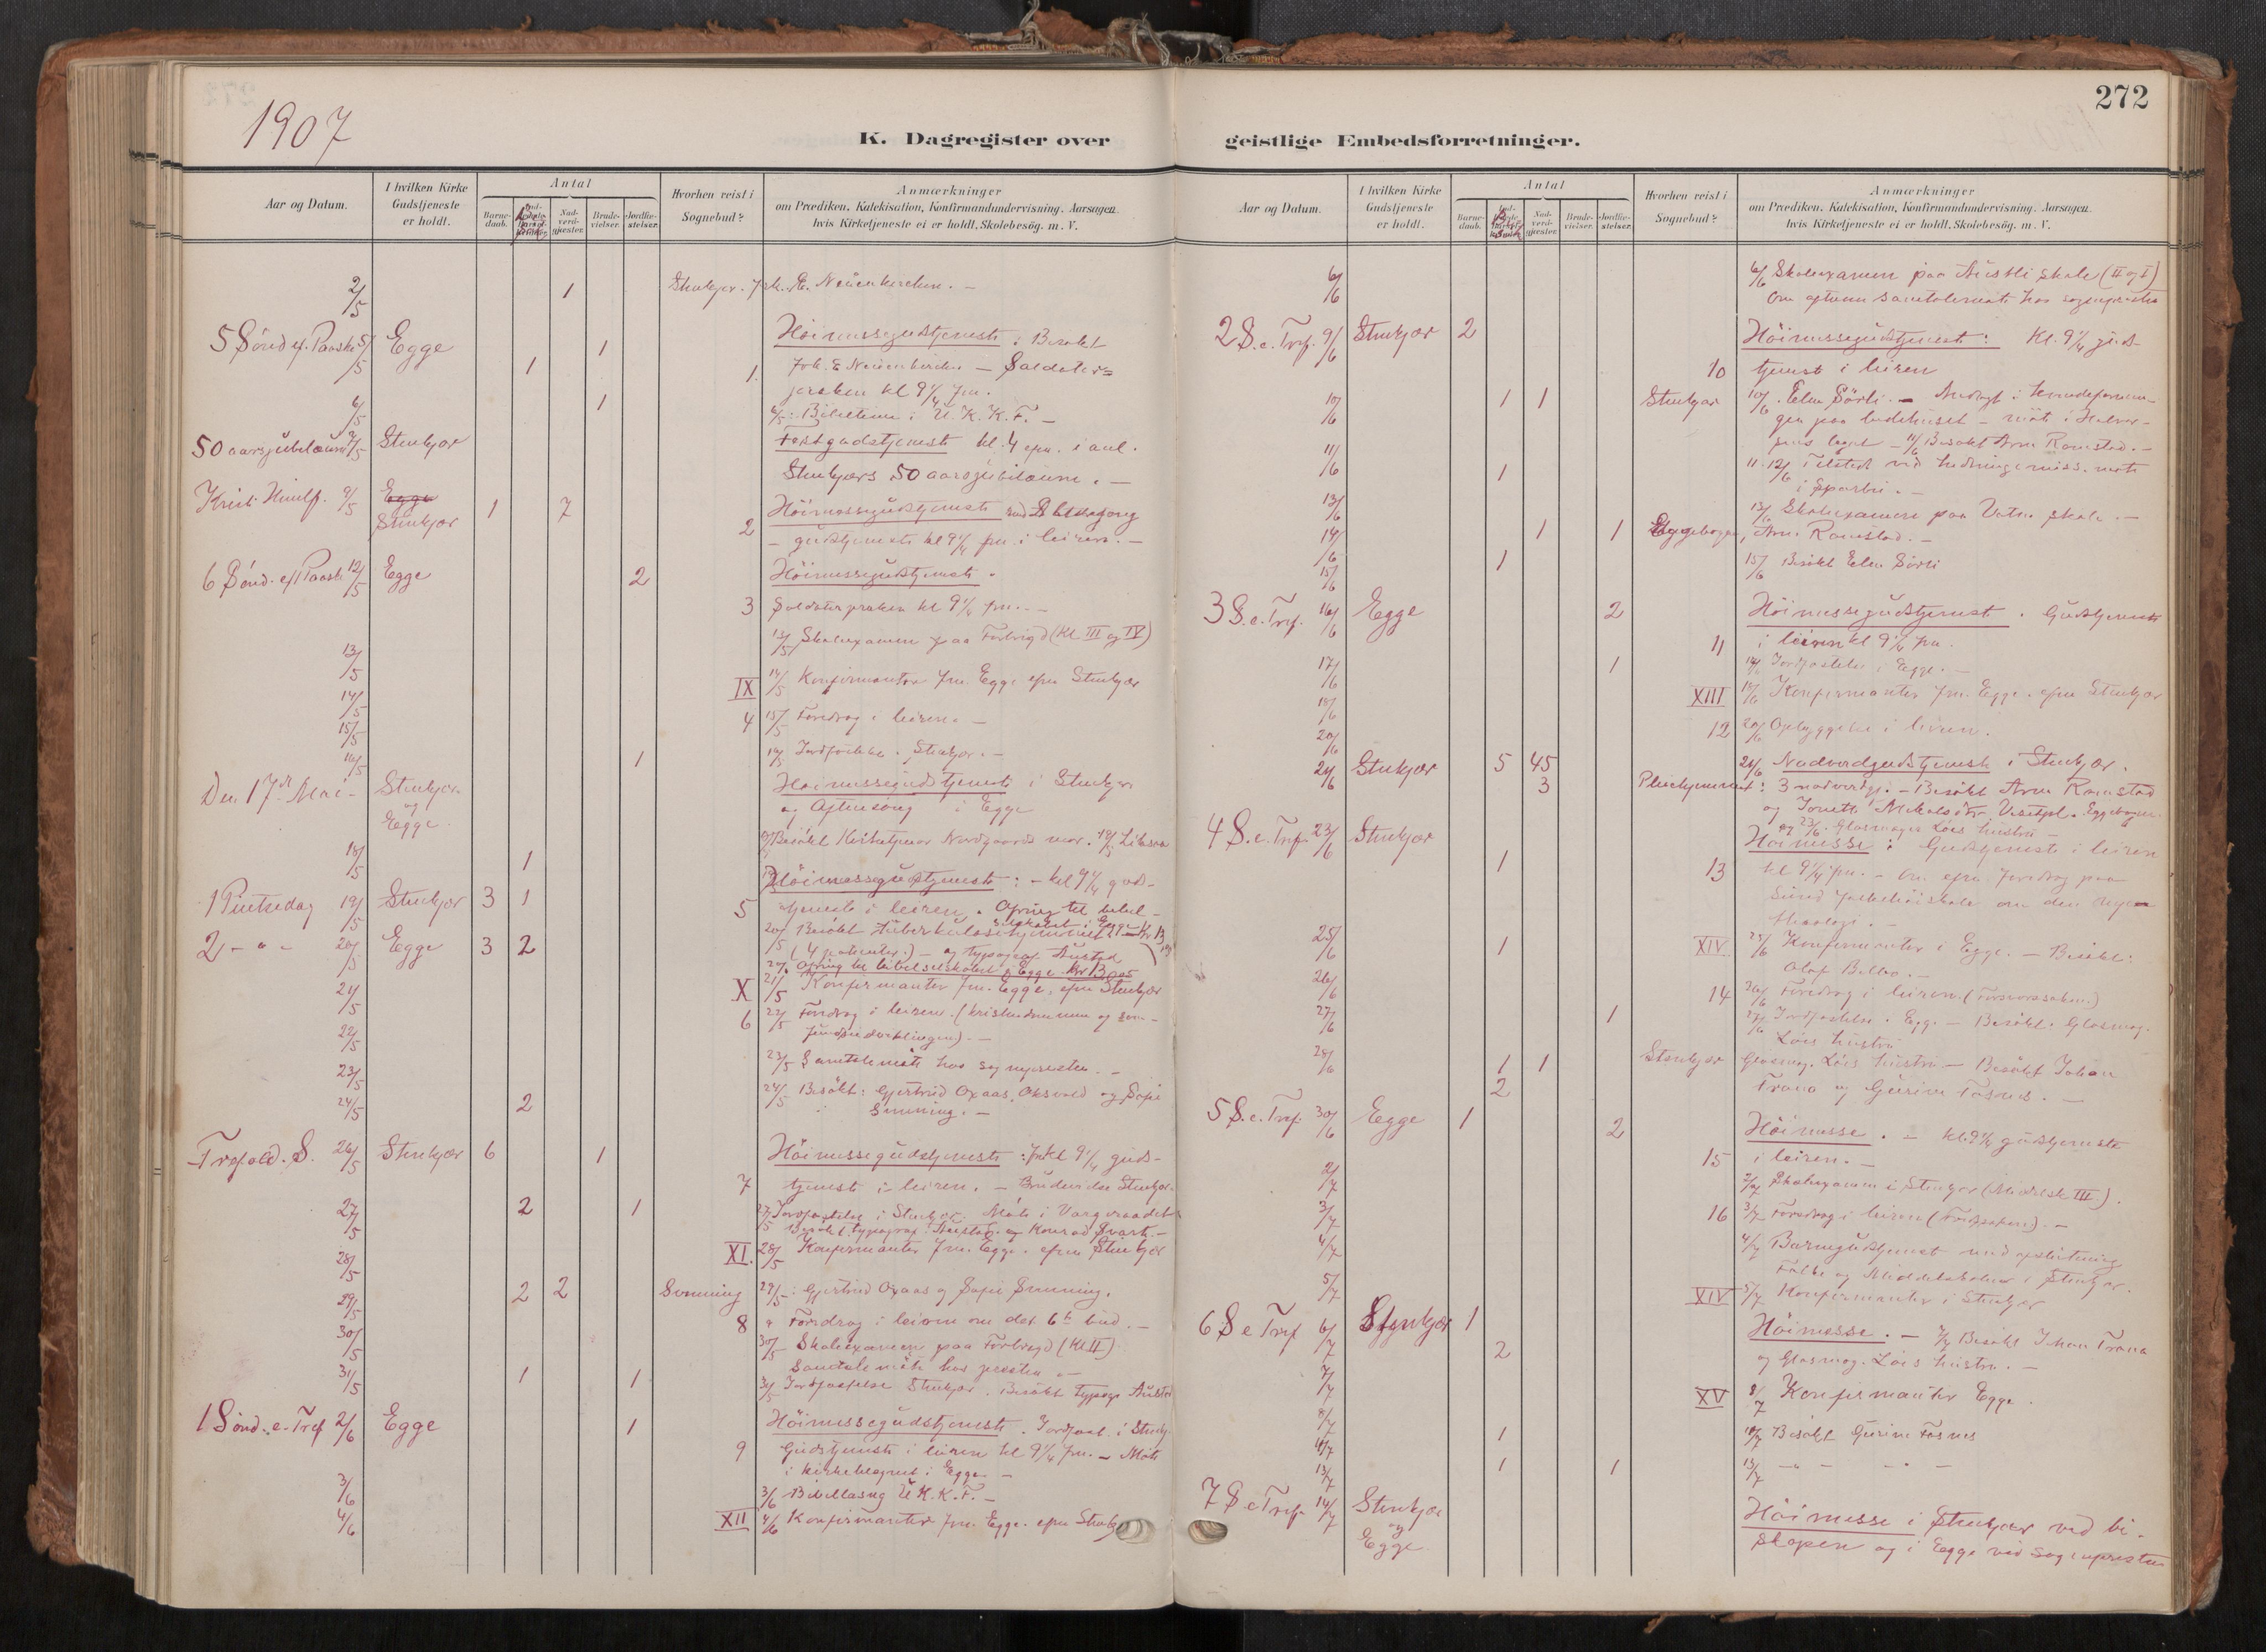 1907
272
K. Dagregister over geistlige Embedsforretninger.
Aar og Datum.
I hvilken Kirke Gudstjeneste er holdt.
Antal
Barne-daab.
Nad-verd-gjæster.
Brude-vielser.
Jordfæ-stelser.
Hvorhen reist i Sognebud?
Anmærkninger
om Prædiken, Katekisation, Konfirmandundervisning, Aarsagen,
hvis Kirketjeneste ei er holdt, Skolebesøg. m. V.
2/5 1 Stenkjær. E. Neuenkirchen. —
5 Sønd. ef. Paaske 5/5 Egge 1 1 Høimessegudstjeneste: Besøkt
1. Joh. E. Neuenkirchen — Soldater-
præken kl 9 1/4 fm.
6/5 1 6/5: Bibeltime i U. K. K. F. —
50 aarsjubilæum 7/5 Stenkjær Festgudstjeneste kl. 4 efm. i anl.
Stenkjærs 50 aarsjubilæum. —
Krist. Himlf. 9/5 Egge Stenkjær 1 7 Høimessegudstjeneste med
2 — gudstjeneste kl 9 1/4 fm. i leiren. —
6 Sønd. eft Paaske 12/5 Egge 2 Høimessegudstjeneste.
3 Soldaterpræken kl 9 1/4 fm. —
13/5 13/5 Skoleexamen paa Forbregd (kl III og IV)
14/5 IX 14/5 Konfirmanter fm. Egge efm Stenkjær
15/5 4 15/5 Foredrag i leiren. —
16/5 1 16/5 Stenkjær. —
Den 17de Mai — Stenkjær og Egge Høimessegudstjeneste i Stenkjær
og Aftensang i Egge
18/5 1 Besøkt Kirketjener Nordgaards mor.
1 Pintsedag 19/5 Stenkjær 3 1 Høimessegudstjeneste: — kl 9 1/4 guds-
5 tjeneste i leiren. Ofring til bibel-
selskabet i Egge
2 — " — 20/5 Egge 3 2 20/5 Besøkt Tuberkulosehjemmet
(4 patienter) — og typograf Austad
20/5 Ofring til bibelselskabet i Egge
21/5 X 21/5 Konfirmanter fm. Egge, efm Stenkjær
22/5 6 22/5 Foredrag i leiren. (kristendommen og sam-
fundsudviklingen). —
23/5 23/5 Samtalemøte hos sognepresten. —
24/5 2 24/5 Besøkt: Gjertrud Oxaas, Oksvold og Sofie
Sunning. —
Trefold. S. 26/5 Stenkjær 6 1 Høimessegudstjeneste: kl 9 1/4 guds-
7 tjenest i leiren. — Brudevielse Stenkjær.
27/5 2 1 27/5 Jordfæstelse i Stenkjær. Møte i Vergeraadet
Besøkt typograf Austad og Konrad Svart. —
28/5 XI. 28/5 Konfirmanter fm. Egge. efm Stenkjær
29/5 2 2 Sunning 29/5: Gjertrud Oxaas og Sofie Sunning.
8 " Foredrag i leiren om det 6te bud. —
30/5 30/5 Skoleexamen paa Forbregd (kl II)
Samtalemøte hos presten —
31/5 1 1 31/5 Jordfæstelse Stenkjær. Besøkt typogr Austad
1 Sønd. e. Tref 2/6 Egge 1 Høimessegudstjeneste. Jordfæst. i Stenkj.
9 Gudstjeneste i leiren kl 9 1/4 fm. — Møte
i Egge. —
3/6 3/6 Bibellæsng U. K. K. F. —
4/6 XII 4/6 Konfirmanter fm. Egge. efm Stenkj
Aar og Datum.
I hvilken Kirke Gudstjeneste er holdt.
Antal
Barne-daab.
Nad-verd-gjæster.
Brude-vielser.
Jordfæ-stelser.
Hvorhen reist i Sognebud?
Anmærkninger
om Prædiken, Katekisation, Konfirmandundervisning, Aarsagen,
hvis Kirketjeneste ei er holdt, Skolebesøg. m. V.
6/6 6/6 Skoleexamen paa skole (II og I)
Om aftenen samtalemøte hos sognepresten
2 S. e. Tref. 9/6 Stenkjær 2 Høimessegudstjenest: Kl. 9 1/4 guds-
10 tjenest i leiren
10/6 1 1 Stenkjær 10/6. Elen Sørli. — i
gen paa bedehuset — møte i
11/6 1 11/6 Besøkt Arne Ramstad. —
11-12/6 Tilstede ved hedningemiss. møte
i Sparbu. —
13/6 13/6 Skoleexamen paa Vatne skole. —
14/6 1 1 Eggebogen, Arne Ramstad. —
15/6 1 15/6 Besøkt Elen Sørli
3 S. e. Tref. 16/6 Egge 2 Høimessegudstjenest. Gudstjeneste
11 i leiren kl 9 1/4 fm.
17/6 1 17/6 Jordfæstelse i Egge. —
18/6 XIII 18/6 Konfirmanter fm. Egge. efm Stenkjær
20/6 12 20/6 Opbyggelse i leiren.
21/6 Stenkjær 5 45 21/6 Nadverdgudstjeneste i Stenkjær.
3 Pleiehjemmet: 3 nadverdgj. — Besøkt Arne Ramstad
og Jonetta Mikalsdtr. Eggebogen.
og 23/6 Glasmager Løes hustru —
4 S. e. Tref. 23/6 Stenkjær 1 Høimesse: Gudstjeneste i leiren
13 kl 9 1/4 fm. — Om efm foredrag paa
Sund folkehøiskole om den nye
theologi. —
25/6 1 XIV 25/6 Konfirmanter i Egge. — Besøkt:
Olaf Belbo. —
26/6 14 26/6 Foredrag i leiren. (Forsvarssaken.)
27/6 1 27/6 Jordfæstelse i Egge — Besøkt. Glasmag.
Løes hustru
28/6 1 1 Stenkjær Glasmag. Løes hustru — Besøkt Johan
2 Trana og Gurine Fosnes. —
5 S. e. Tref. 30/6 Egge 1 2 Høimesse. — kl. 9 1/4 gudstjeneste
15 i leiren. —
2/7 2/7 Skoleexamen i Stenkjær (Middelsk III).
3/7 16 3/7 Foredrag i leiren —
4/7 4/7 Barnegudstjenest med afslutning
Folke og Middelskolen i Stenkjær.
5/7 XIV 5/7 Konfirmanter i Stenkjær
6 S e Tref 6/7 Stenkjær 1 Høimesse. — 7/7 Besøkt Johan Trana
7/7 2 og Glasmag. Løes hustru. —
8/7 XV 8/7 Konfirmanter Egge.
11/7 1 Besøkt Gurine Fosnes
13/7 1 1 13/7 — " — — " —
7 S e Tref. 14/7 Stenkjær og Egge. Høimesse i Stenkjær ved bi-
skopen og i Egge ved sognepresten